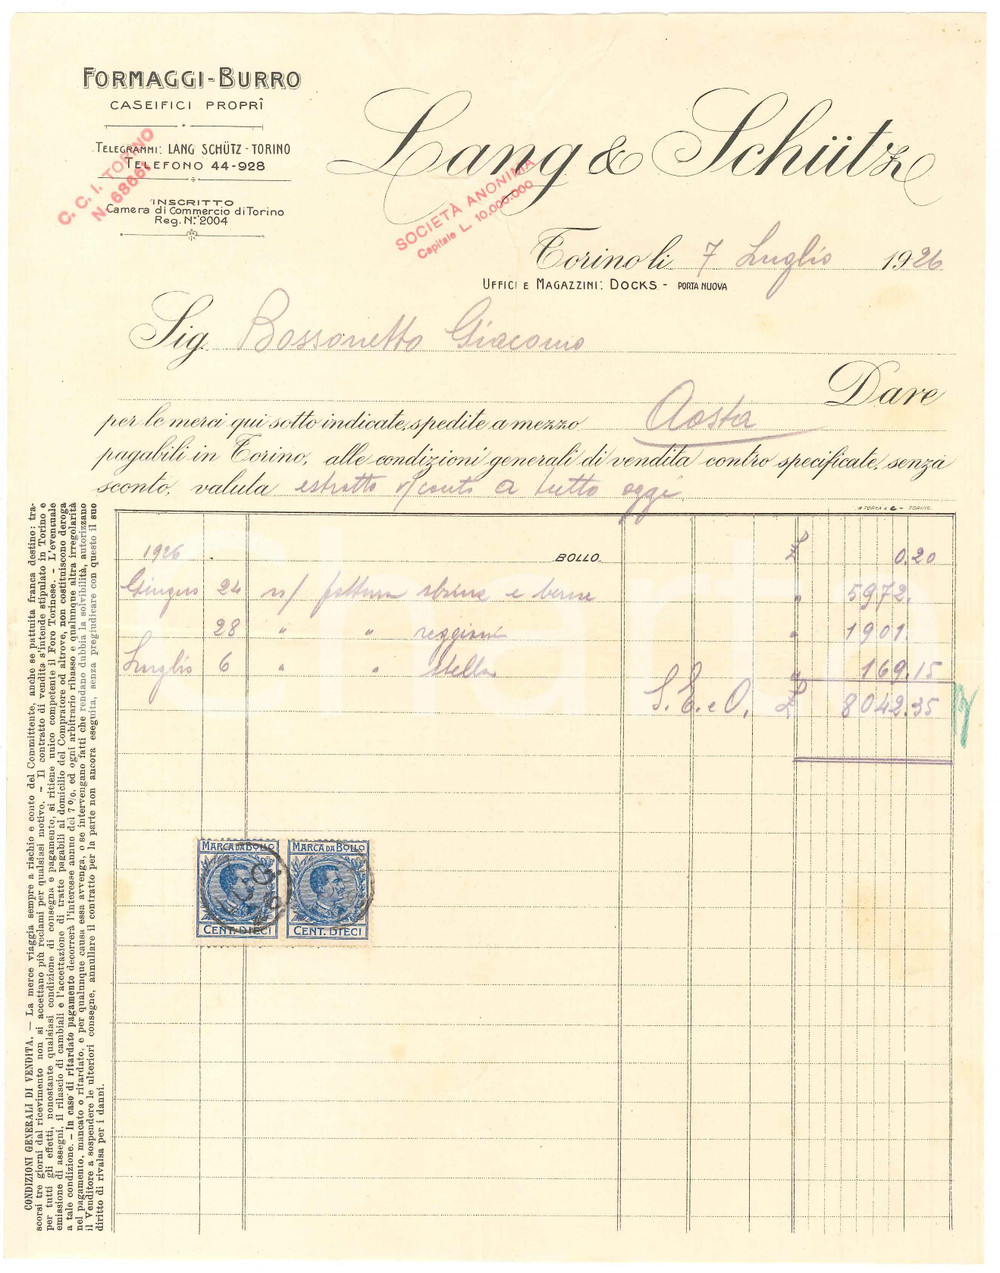 FORMAGGI-BURRO
CASEIFICI PROPRÎ
TELEGRAMMI: LANG SCHÜTZ - TORINO
TELEFONO 44-928
C. C. I. TORINO
N. 68661
INSCRITTO
Camera di Commercio di Torino
Reg. N.º 2004
Lang & Schütz
SOCIETÀ ANONIMA
Capitale L. 10.000.000
Torino li 7 Luglio 1926
UFFICI E MAGAZZINI: DOCKS - PORTA NUOVA
Sig. Bossonetto Giacomo
Dare
per le merci qui sotto indicate, spedite a mezzo Aosta
pagabili in Torino, alle condizioni generali di vendita contro specificate, senza
sconto, valuta estratto n/conto a tutto oggi
1926 BOLLO 0.20
Giugno 24 n/ fattura e berne " 5972.
28 " " reggiani " 1901.
Luglio 6 " " stella " 169.15
S. E. e O. 8042.35
MARCA DA BOLLO
CENT. DIECI
MARCA DA BOLLO
CENT. DIECI
CONDIZIONI GENERALI DI VENDITA. — La merce viaggia sempre a rischio e conto del Committente, anche se pattuita franca destino: tra-
scorsi tre giorni dal ricevimento non si accettano più reclami per qualsiasi motivo. — Il contratto di vendita s'intende stipulato in Torino e
per tutti gli effetti, nonostante qualsiasi condizione di consegna e pagamento, si ritiene unico competente il Foro Torinese. — L'evenuale
emissione di assegni, il rilascio di cambiali e l'accettazione di tratte pagabili al domicilio del Compratore od altrove, non costituiscono deroga
a tale condizione. — In caso di ritardato pagamento decorrerà l'interesse annuo del 7 %, ed ogni arbitrario ribasso e qualunque altra irregolarità
nel pagamento, mancato o ritardato, e per qualunque causa essa avvenga, o se intervengano fatti che rendano dubbia la solvibilità, autorizzano
il Venditore a sospendere le ulteriori consegne, annullare il contratto per la parte non ancora eseguita, senza pregiudicare con questo il suo
diritto di rivalsa per i danni.